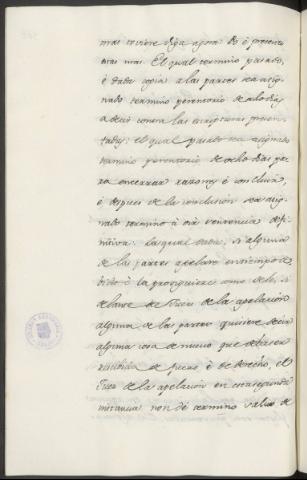 mas tuviere diga agora dó é presente
otras mas. El qual termino pasado,
é dada copia a las partes sea asig-
nado termino perentorio de ocho dias
a decir contra las escripturas presen-
tadas: el qual pasado sea asignado
termino perentorio de ocho dias pa-
ra encerrar razones é concluir,
é despues de la conclusión sea asig-
nado termino à oir sentencia defi-
nitiva: la qual dada, si alguna
de las partes apelare en tiempo de-
bido é la prosiguiere como debe, si
delante del Juez de la apelación
alguna de las partes quisiere decir
alguna cosa de nuevo que deba ser
recibida de fuero é de derecho, el
Juez de la apelación en esta segunda
instancia non dé termino salvo de